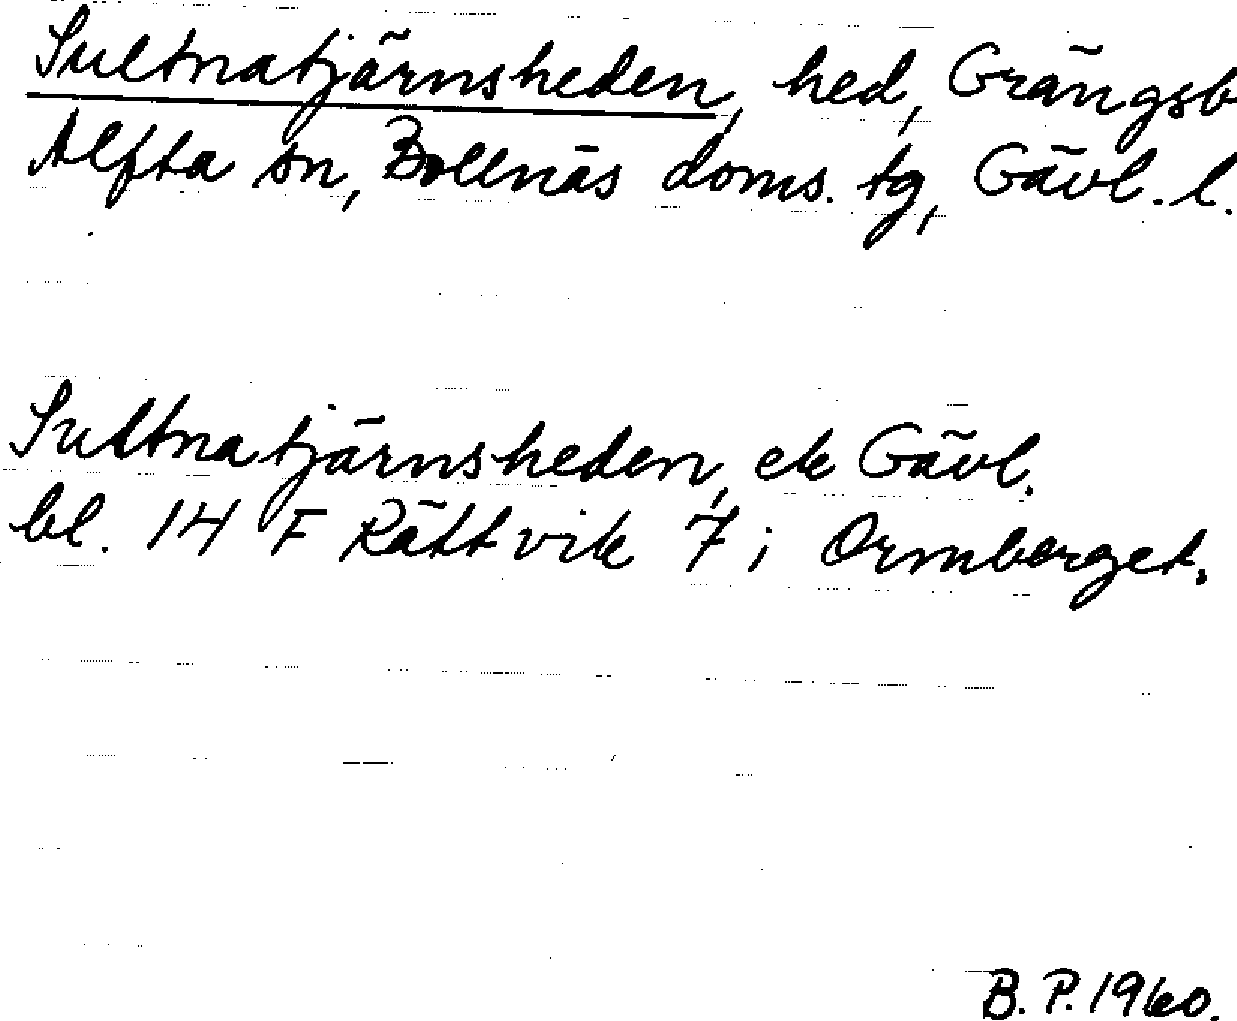 Sultnatjärnsheden, hed, Grängsb
Alfta sn, Bollnäs doms. tg, Gävl. l.
Sultnatjärnsheden, ek Gävl.
bl. 14 F Rättvik 7 i Ormberget.
B. P. 1960.